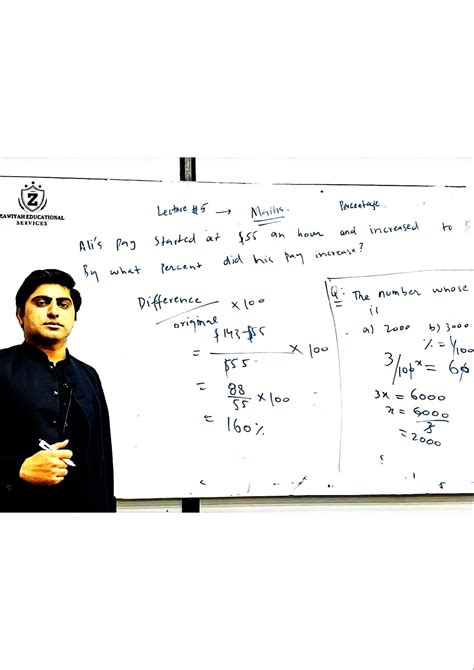 Z
ZAWIYAH EDUCATIONAL
SERVICES
Lecture #5 → Maths. Percentage.
Ali's pay started at $55 an hour and increased to
By what percent did his pay increase?
Difference × 100
original
= $143-$55 × 100
$55
= 88 × 100
55
= 160%
Q: The number whose
is
a) 2000 b) 3000
% = 1/100
3/100 x = 60
3x = 6000
x = 6000
3
= 2000